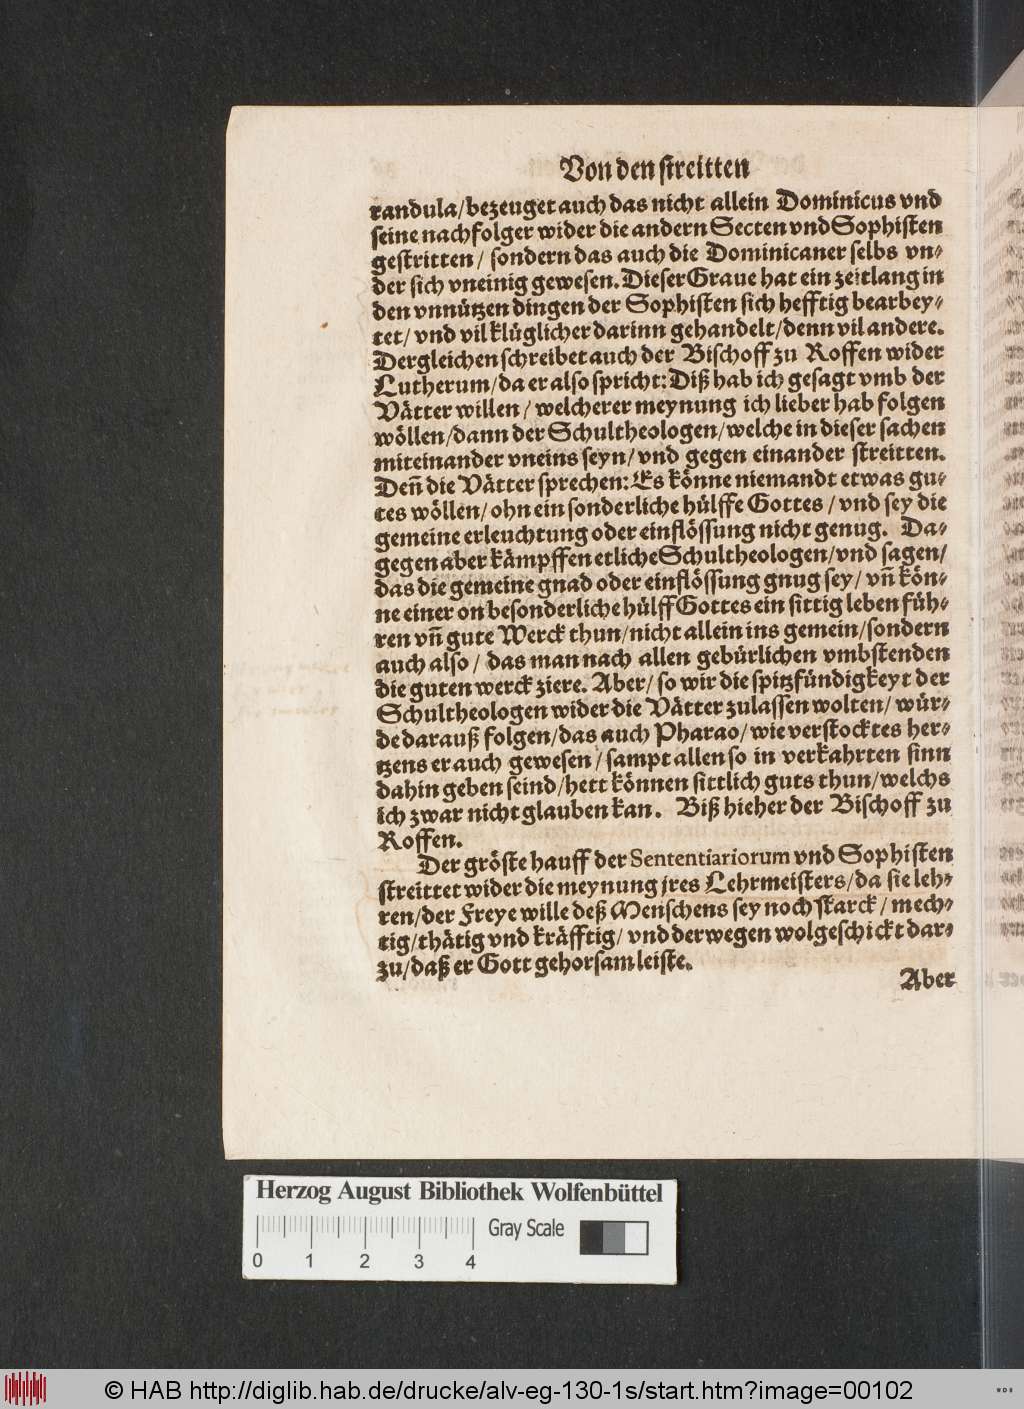 Von den streitten
randula/bezeuget auch das nicht allein Dominicus vnd
seine nachfolger wider die andern Secten vnd Sophisten
gestritten/ sondern das auch die Dominicaner selbs vn-
der sich vneinig gewesen. Dieser Graue hat ein zeitlang in
den vnnützen dingen der Sophisten sich hefftig bearbey-
tet/ vnd vil klüglicher darinn gehandelt/denn vil andere.
Dergleichen schreibet auch der Bischoff zu Roffen wider
Lutherum/da er also spricht: Diß hab ich gesagt vmb der
Vätter willen/ welcherer meynung ich lieber hab folgen
wöllen/dann der Schultheologen/welche in dieser sachen
miteinander vneins seyn/ vnd gegen einander streitten.
Deñ die Vätter sprechen: Es könne niemandt etwas gu-
tes wöllen/ ohn ein sonderliche hülffe Gottes/ vnd sey die
gemeine erleuchtung oder einflössung nicht genug. Da-
gegen aber kämpffen etliche Schultheologen/vnd sagen/
das die gemeine gnad oder einflössung gnug sey/ vñ kön-
ne einer on besonderliche hülff Gottes ein sittig leben füh-
ren vñ gute Werck thun/nicht allein ins gemein/sondern
auch also/ das man nach allen gebürlichen vmbstenden
die guten werck ziere. Aber/ so wir die spitzfündigkeyt der
Schultheologen wider die Vätter zulassen wolten/ wür-
de darauß folgen/das auch Pharao/ wie verstocktes her-
tzens er auch gewesen/ sampt allen so in verkahrten sinn
dahin geben seind/hett können sittlich guts thun/welchs
ich zwar nicht glauben kan. Biß hieher der Bischoff zu
Roffen.
Der gröste hauff der Sententiariorum vnd Sophisten
streittet wider die meynung jres Lehrmeisters/da sie leh-
ren/der Freye wille deß Menschens sey noch starck/ mech-
tig/thätig vnd kräfftig/ vnd derwegen wolgeschickt dar-
zu/daß er Gott gehorsam leiste.
Aber
Herzog August Bibliothek Wolfenbüttel
Gray Scale
0 1 2 3 4
© HAB http://diglib.hab.de/drucke/alv-eg-130-1s/start.htm?image=00102